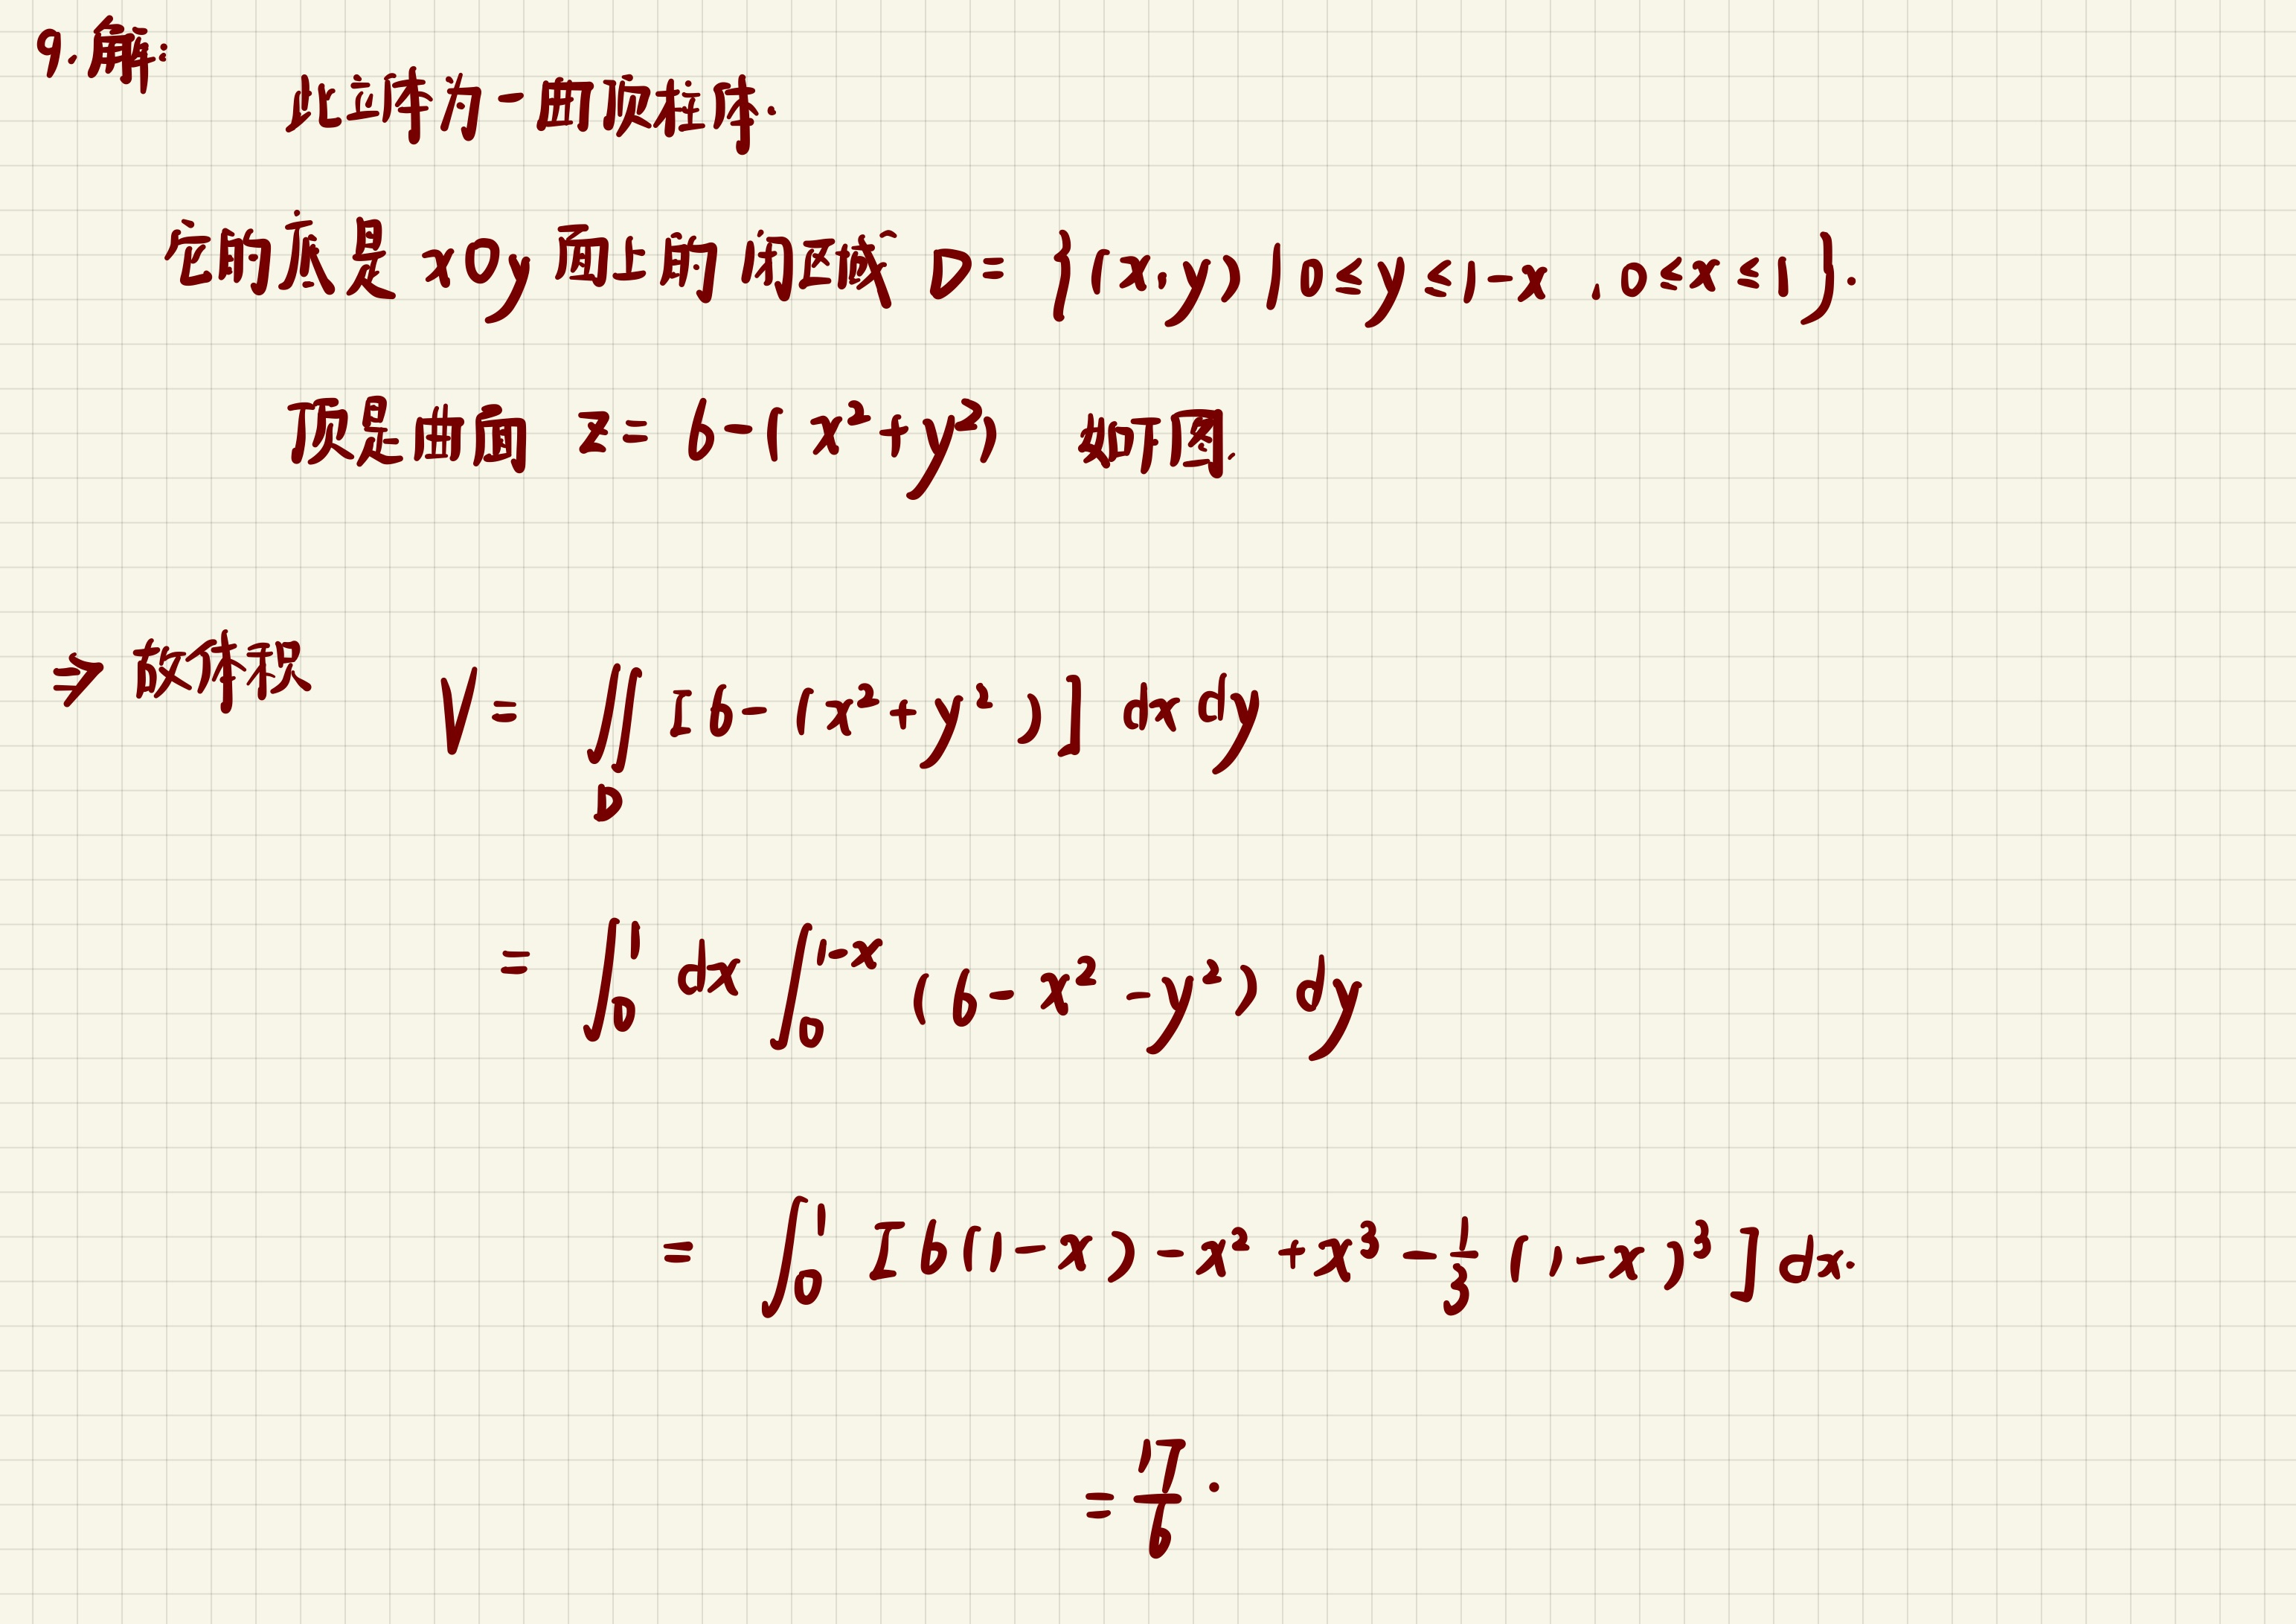 9.解:
此立体为一曲顶柱体.
它的底是 xOy 面上的闭区域 D = {(x,y)|0≤y≤1-x,0≤x≤1}.
顶是曲面 z = 6-(x²+y²) 如下图.
⇒ 故体积 V = ∬_D [6-(x²+y²)] dxdy
= ∫₀¹ dx ∫₀^{1-x} (6-x²-y²) dy
= ∫₀¹ [6(1-x)-x²+x³-1/3(1-x)³] dx.
= 17/6.